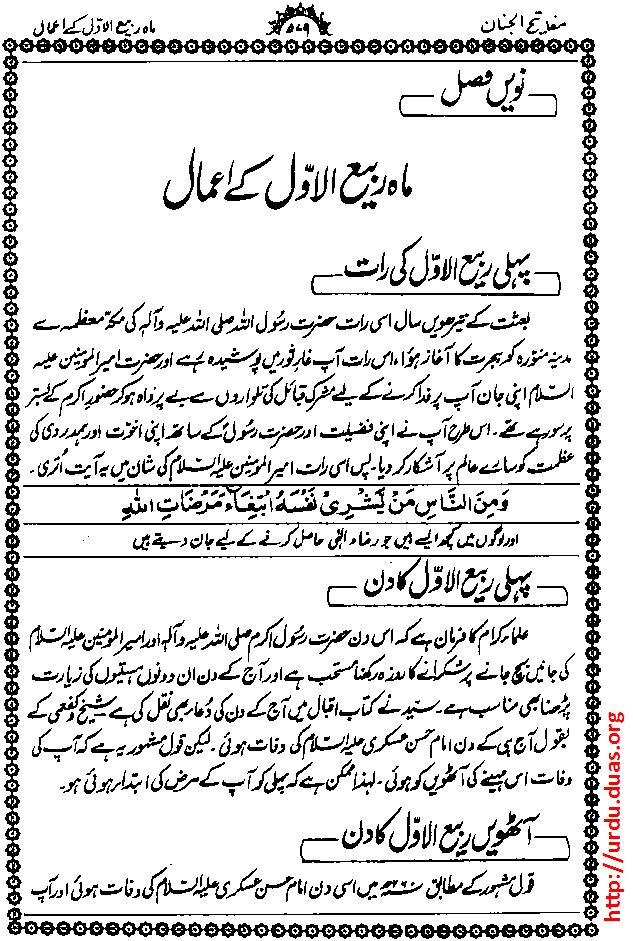 مفاتیح الجنان ۵۷۹ ماہ ربیع الاوّل کے اعمال
نویں فصل
ماہ ربیع الاوّل کے اعمال
پہلی ربیع الاوّل کی رات
بعثت کے تیرھویں سال اسی رات حضرت رسول اللہ صلی اللہ علیہ وآلہ کی مکہ معظمہ سے
مدینہ منورہ کو ہجرت کا آغاز ہوا، اس رات آپ غار ثور میں پوشیدہ رہے اور حضرت امیر المومنین علیہ
السلام اپنی جان آپ پر فدا کرنے کے لیے مشرک قبائل کی تلواروں سے بے پرواہ ہو کر حضور اکرم کے بستر
پر سو رہے تھے۔ اس طرح آپ نے اپنی فضیلت اور حضرت رسول کے ساتھ اپنی اخوت اور ہمدردی کی
عظمت کو سارے عالم پر آشکار کر دیا۔ پس اسی رات امیر المومنین علیہ السلام کی شان میں یہ آیت اُتری۔
وَمِنَ النَّاسِ مَنْ يَشْرِىْ نَفْسَهُ ابْتِغَآءَ مَرْضَاتِ اللهِ
اور لوگوں میں کچھ ایسے ہیں جو رضاء الٰہی حاصل کرنے کے لیے جان دیتے ہیں
پہلی ربیع الاوّل کا دن
علماء کرام کا فرمان ہے کہ اس دن حضرت رسول اکرم صلی اللہ علیہ وآلہ اور امیر المومنین علیہ السلام
کی جانیں بچ جانے پر شکرانے کا روزہ رکھنا مستحب ہے اور آج کے دن ان دونوں ہستیوں کی زیارت
پڑھنا بھی مناسب ہے۔ سید نے کتاب اقبال میں آج کے دن کی دُعا بھی نقل کی ہے شیخ و کفعمی کے
بقول آج ہی کے دن امام حسن عسکری علیہ السلام کی وفات ہوئی۔ لیکن قول مشہور یہ ہے کہ آپ کی
وفات اس مہینے کی آٹھویں کو ہوئی۔ لہٰذا ممکن ہے کہ پہلی کو آپ کے مرض کی ابتدار ہوئی ہو۔
آٹھویں ربیع الاوّل کا دن
قول مشہور کے مطابق ۲۶۰ھ میں اسی دن امام حسن عسکری علیہ السلام کی وفات ہوئی اور آپ
http://urdu.duas.org